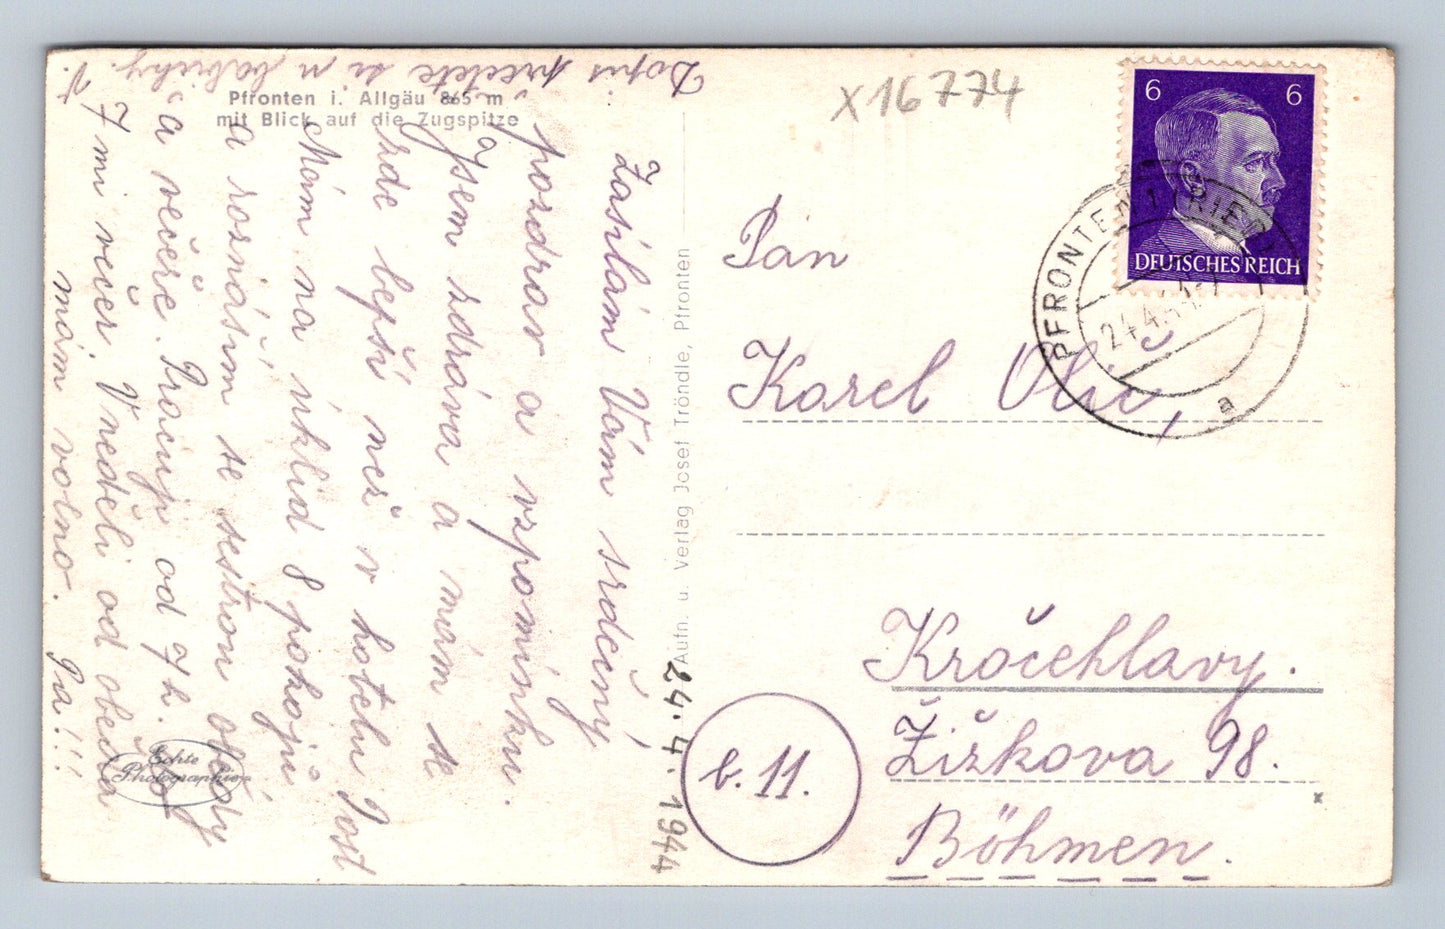 Pfronten i. Allgäu 865 m
mit Blick auf die Zugspitze
Zasílám Vám srdečný
pozdrav a vzpomínku.
Jsem zdráva a mám se
zde lepší než v hotelu Post
Mám na úklid 8 pokojů
a roznáším se sestrou obědy
a večeře. Pracuji od 7 h. do
7 mi večer. V neděli od oběda
mám volno. Pa!!!
V.
Dopis přečtete si u babičky.
Echte
Photographie
Aufn. u. Verlag Josef Tröndle, Pfronten
24.4.1944
X16774
6 6
DEUTSCHES REICH
PFRONTEN 1 RIED
24.4.44
a
Pan
Karel Olič,
Kročehlavy.
Žižkova 98.
Böhmen.
b. 11.
x